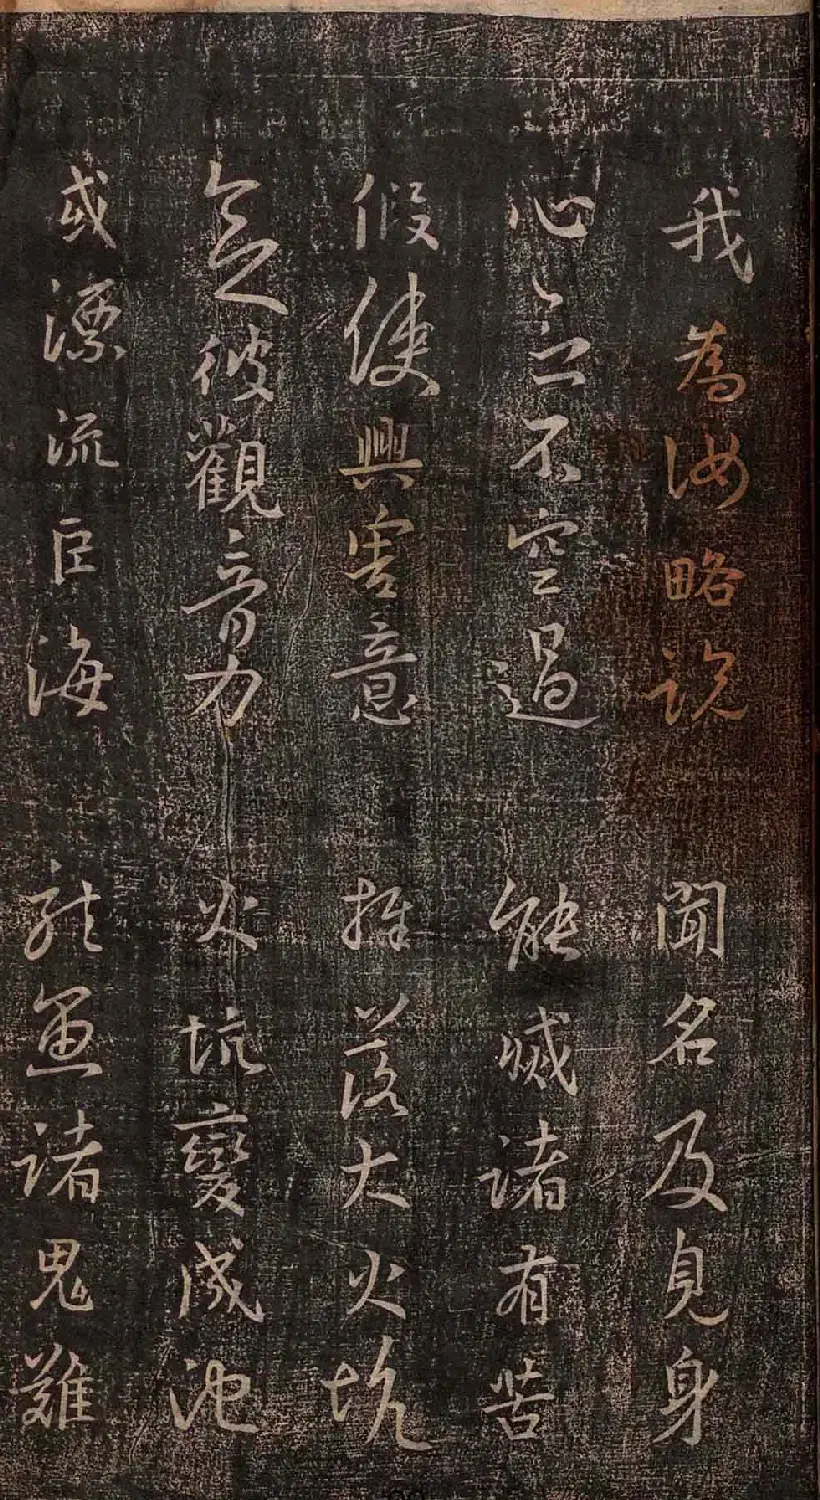 我為汝略說 聞名及見身
心念不空過 能滅諸有苦
假使興害意 推落大火坑
念彼觀音力 火坑變成池
或漂流巨海 龍魚諸鬼難